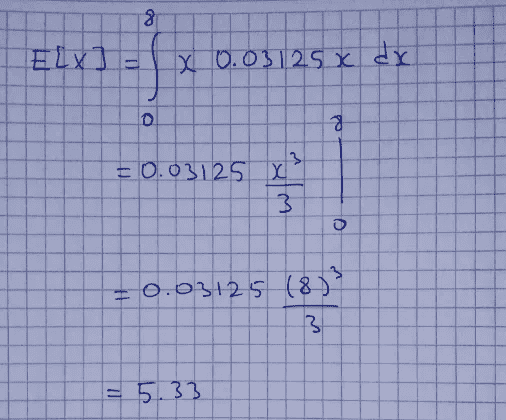 E[X] = ∫₀⁸ x 0.03125 x dx
= 0.03125 x³/3 |₀⁸
= 0.03125 (8)³/3
= 5.33